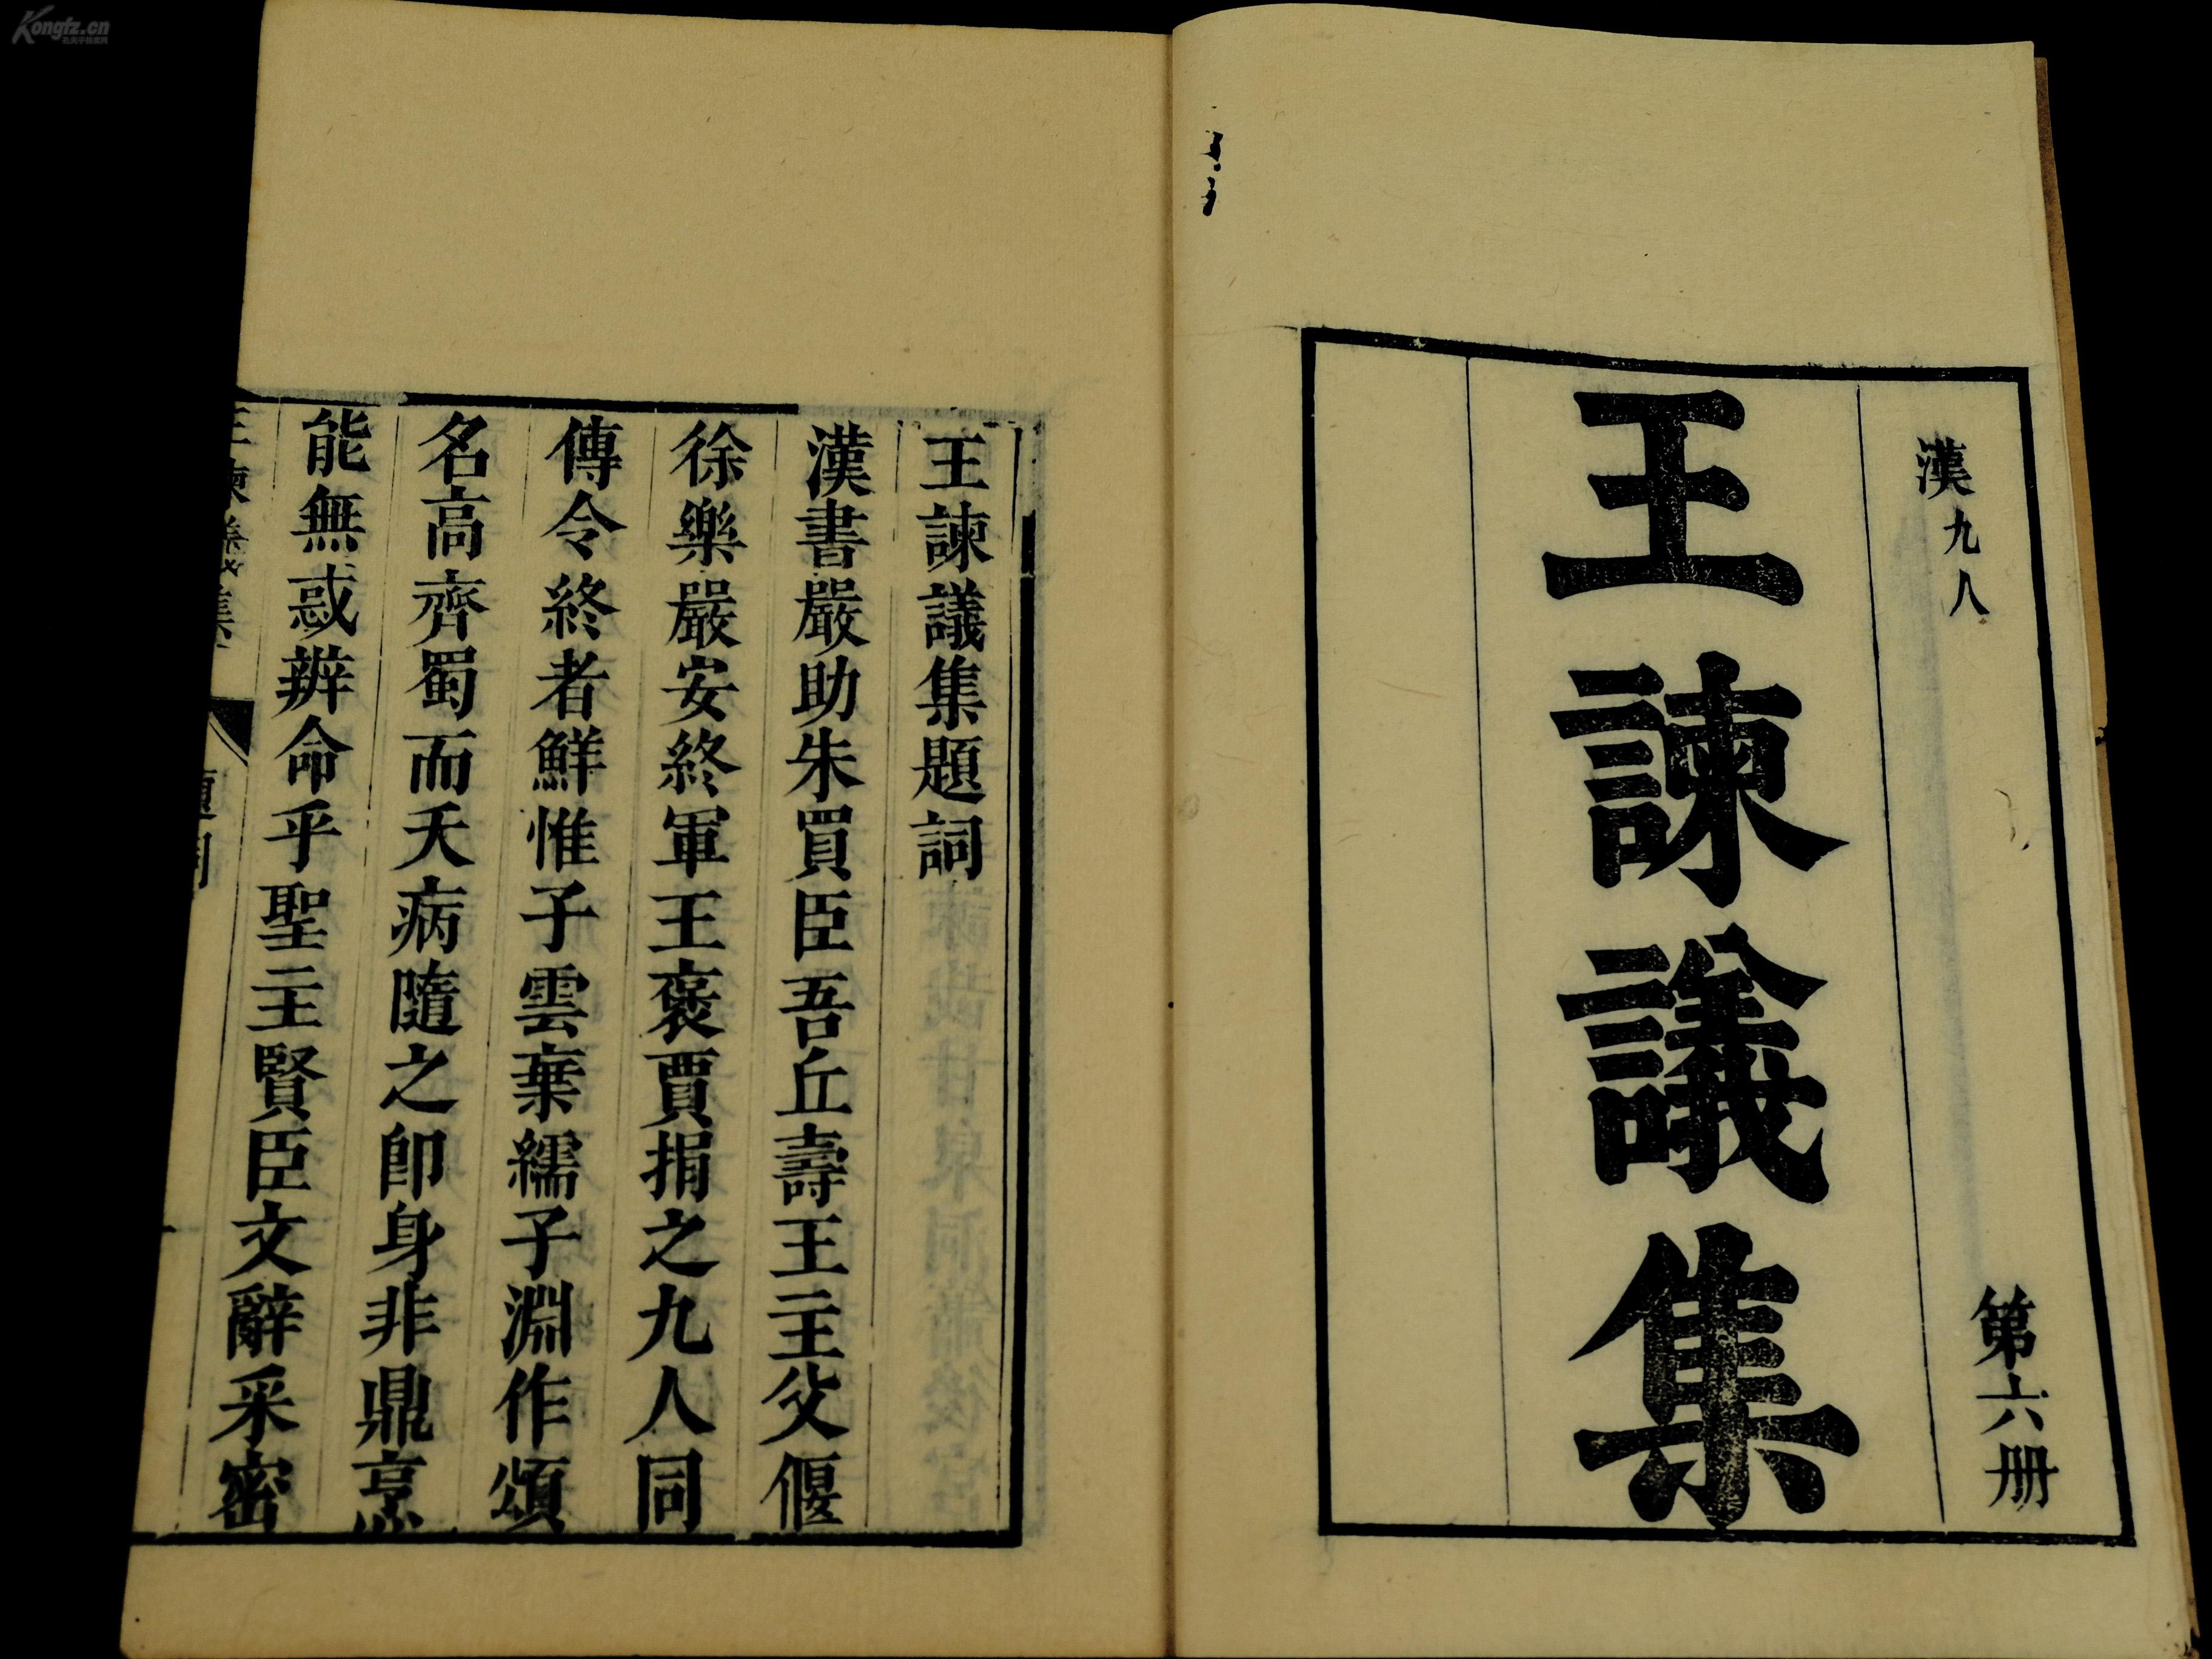 Kongfz.cn
孔夫子旧书网
漢九人
第六册
王諫議集
王諫議集題詞
漢書嚴助朱買臣吾丘壽王主父偃
徐樂嚴安終軍王褒賈捐之九人同
傳令終者鮮惟子雲棄繻子淵作頌
名高齊蜀而夭病隨之卽身非鼎烹
能無惑辨命乎聖主賢臣文辭采密
王諫議集
題詞
一